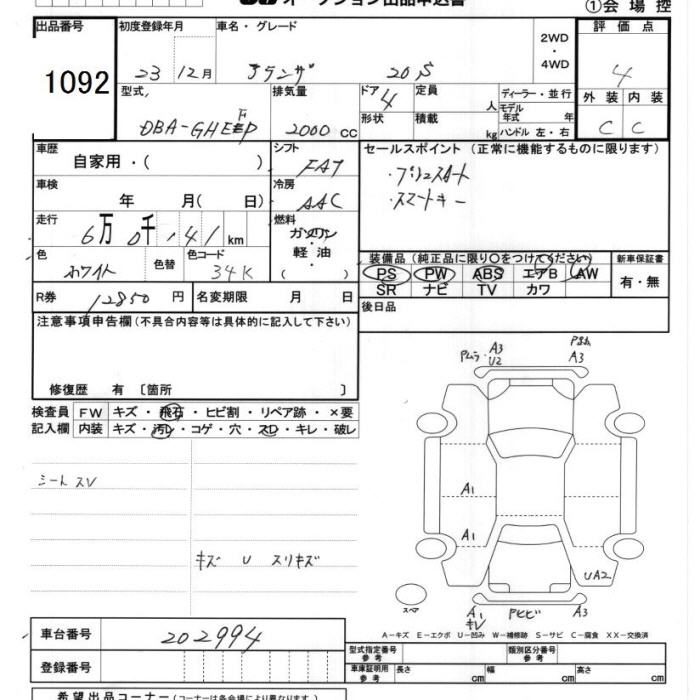 オークション出品申込書
①会場控
出品番号 初度登録年月 車名・グレード 2WD・4WD 評価点
1092 23 12月 20S 4
型式 排気量 ドア 4 定員 人 ディーラー・並行 外装 内装
モデル年式 年
DBA-GHEFP 2000 CC 形状 積載 kg ハンドル 左・右 C C
車歴 自家用・( ) シフト FAT セールスポイント (正常に機能するものに限ります)
・プッシュスタート
車検 年 月( 日) 冷房 AAC ・スマートキー
走行 6万0千,41km 燃料 ガソリン・軽油・( )
装備品(純正品に限り○をつけてください) 新車保証書
色 ホワイト 色替 色コード 34K PS PW ABS エアB AW 有・無
SR ナビ TV カワ
R券 12850円 名変期限 月 日 後日品
注意事項申告欄(不具合内容等は具体的に記入して下さい)
修復歴 有〔箇所 〕
検査員 FW キズ・飛石・ヒビ割・リペア跡・×要
記入欄 内装 キズ・汚レ・コゲ・穴・スレ・キレ・破レ
シートスレ
キズ U スリキズ
Pムラ・A3 U2
A3
A1
A1
UA2
スペア
A1 キレ Pヒビ A3
A-キズ E-エクボ U-凹み W-補修跡 S-サビ C-腐食 XX-交換済
車台番号 202994
登録番号
型式指定番号 参考 類別区分番号 参考
車庫証明用 参考 長さ cm 幅 cm 高さ cm
希望出品コーナー(コーナーは各会場により異なります)